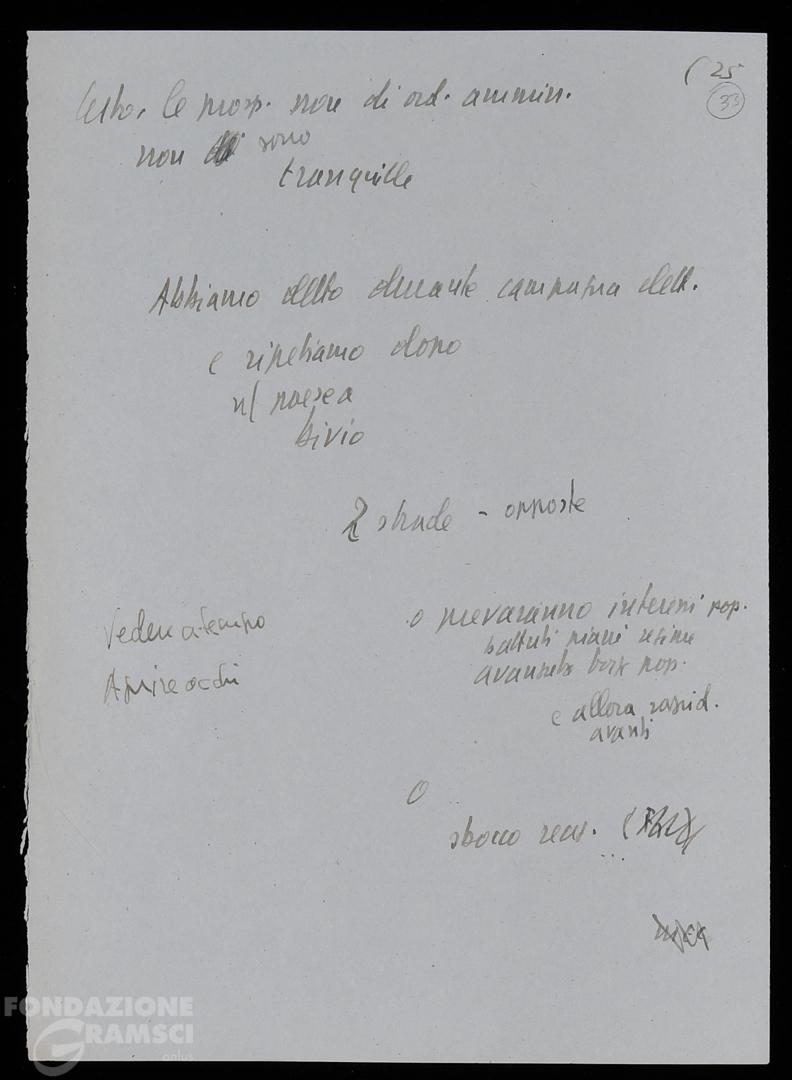 ( 25
33
le prosp. non di ord. ammin.
non sono
tranquille
Abbiamo detto durante campagna elett.
e ripetiamo dopo
n/ paese a
bivio
2 strade - opposte
Vedere a tempo
Aprire occhi
o prevaranno interessi pop.
battuti piani
avanzata forze pop.
e allora rapid.
avanti
O
sbocco reaz.
...
FONDAZIONE
GRAMSCI
onlus